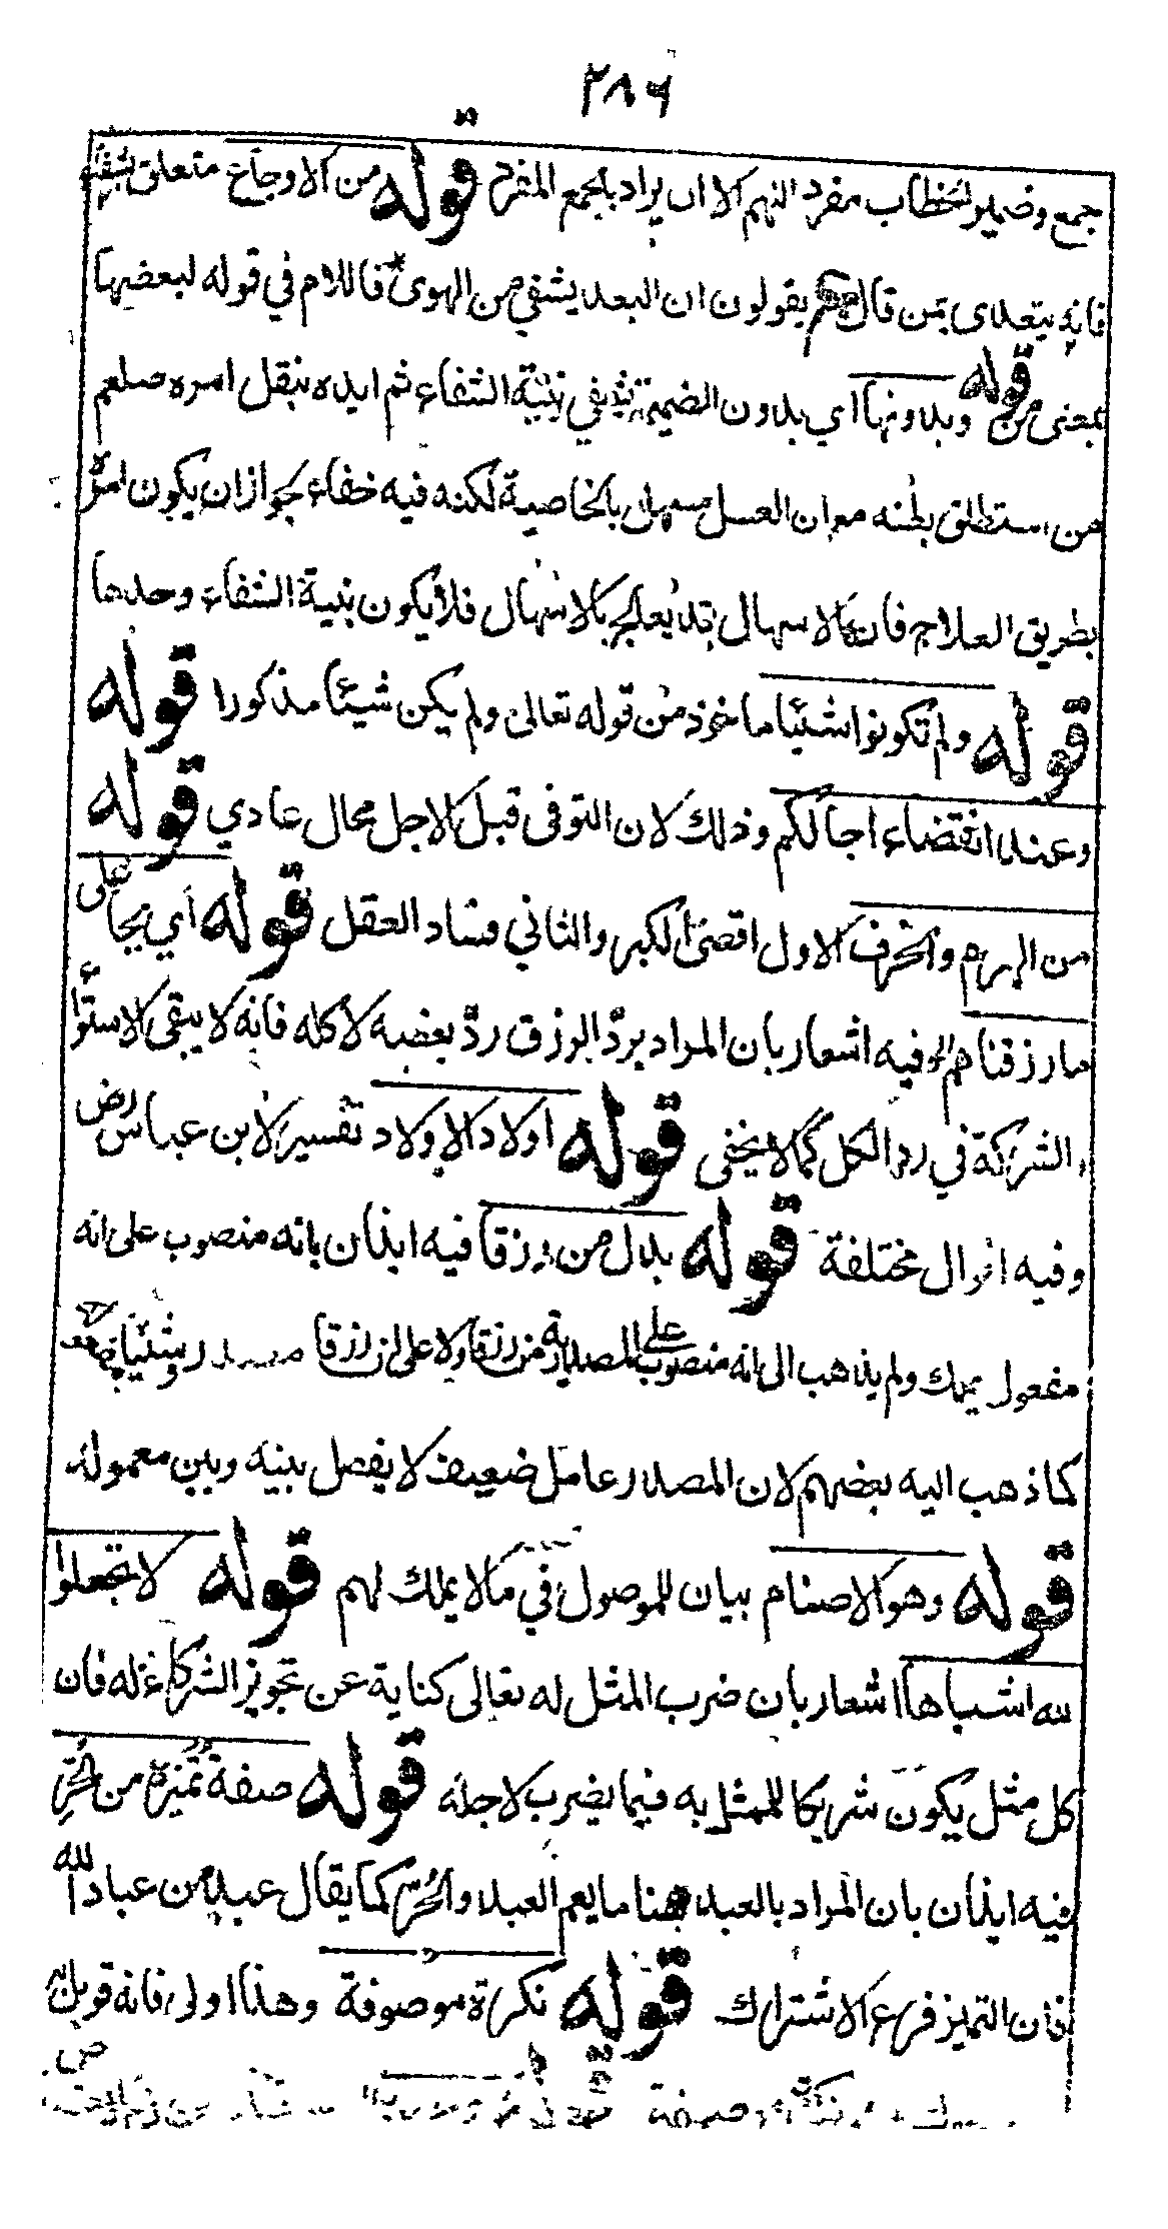 ٢٨٦
جمع وضمير الخطاب مفرد اللهم الا ان يراد بالجمع المفرد قوله من الاوجاع متعلق بشفاء
فانه يتعدى بمن قال يقولون ان البعد يشفي من الهوى فاللام في قوله لبعضها
بمعنى من قوله وبدونها اي بدون الضميمة بنية الشفاء ثم ايده بنقل امره صلعم
من استطلق بطنه مع ان العسل مسهل بالخاصية لكنه فيه خفاء لجواز ان يكون امره
بطريق العلاج فان الاسهال قد يعالج بالاسهال فلا يكون بنية الشفاء وحدها
قوله ولم تكونوا شيئا ماخوذ من قوله تعالى ولم يكن شيئا مذكورا قوله
وعند انقضاء اجالكم وذلك لان التوفى قبل الاجل محال عادي قوله
من الهرم والخرف الاول اقصى الكبر والثاني فساد العقل قوله اي بجاعلى
ما رزقناهم الخ وفيه اشعار بان المراد برد الرزق رد بعضه لا كله فانه لا يبقى الاستواء
والشركة في رد الكل كما لا يخفى قوله اولاد الاولاد تفسير لابن عباس رض
وفيه اقوال مختلفة قوله بدل من رزقا فيه ايذان بانه منصوب على انه
مفعول يملك ولم يذهب الى انه منصوب على المصدرية من رزقا ولا على ان رزقا مصدر وشيئا مفعوله
كما ذهب اليه بعضهم لان المصدر عامل ضعيف لا يفصل بينه وبين معموله
قوله وهو الاصنام بيان للموصول في ما لا يملك لهم قوله لا تجعلوا
لله اشباها اشعار بان ضرب المثل له تعالى كناية عن تجويز الشركاء له فان
كل مثل يكون شريكا للممثل به فيما يضرب لاجله قوله صفة تميزه من الحر
فيه ايذان بان المراد بالعبد ههنا ما يعم العبد والحر كما يقال عبد من عباد الله
فان التميز فرع الاشتراك قوله نكرة موصوفة وهذا اولى فانه قوبل به